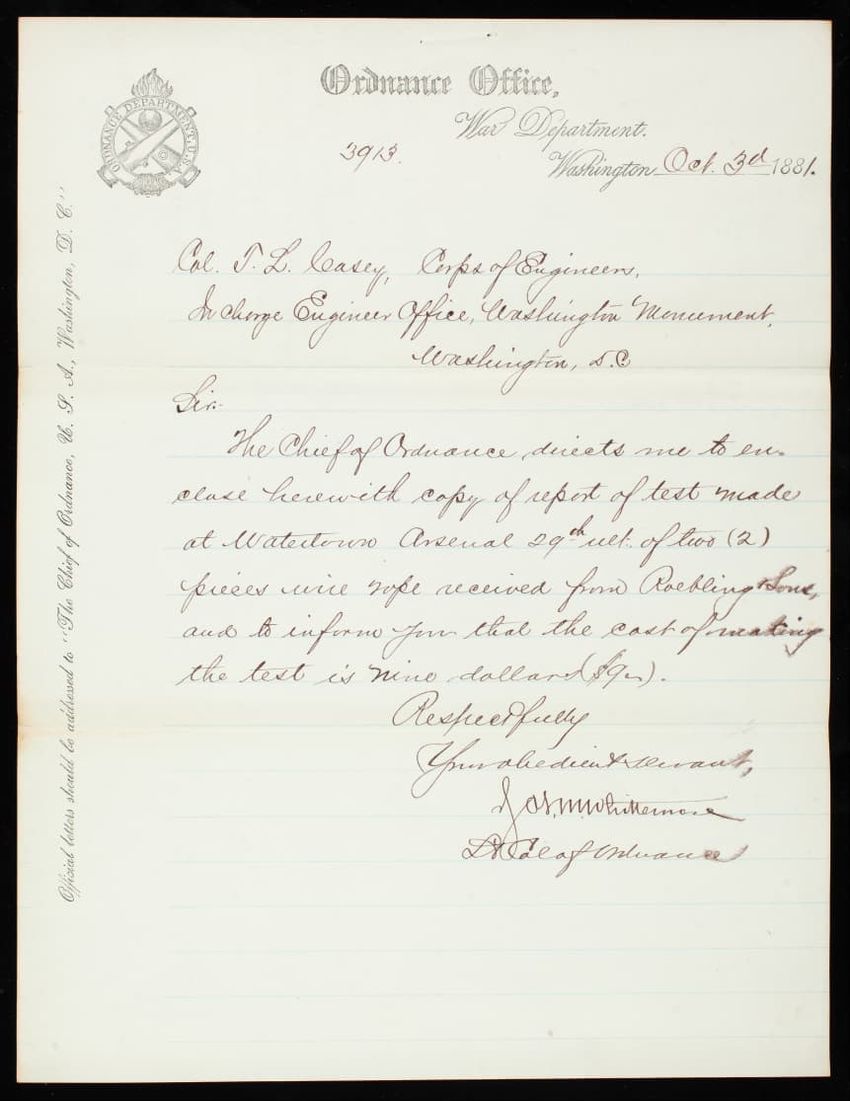 Ordnance Office,
ORDNANCE DEPARTMENT. U.S.A
War Department.
3913.
Washington Oct. 3d 1881.
Official letters should be addressed to "The Chief of Ordnance, U. S. A., Washington, D. C."
Col. T. L. Casey, Corps of Engineers,
In charge Engineer Office, Washington Monument,
Washington, D.C
Sir:
The Chief of Ordnance directs me to en-
close herewith copy of report of test made
at Watertown Arsenal 29th ult. of two (2)
pieces wire rope received from Roebling & Sons,
and to inform you that the cost of making
the test is nine dollars ($9
Respectfully
Your obedient servant,
Whittemore
Lt Col of Ordnance